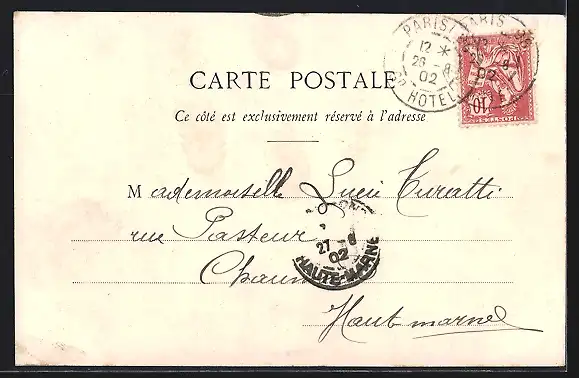 PARIS
12 *
26 - 8
02
HOTEL
PARIS
8
02
10
POSTES
CARTE POSTALE
Ce côté est exclusivement réservé à l'adresse
Mademoiselle Lucie
rue Pasteur
27 - 8
02
HAUTE-MARNE
Haute marne